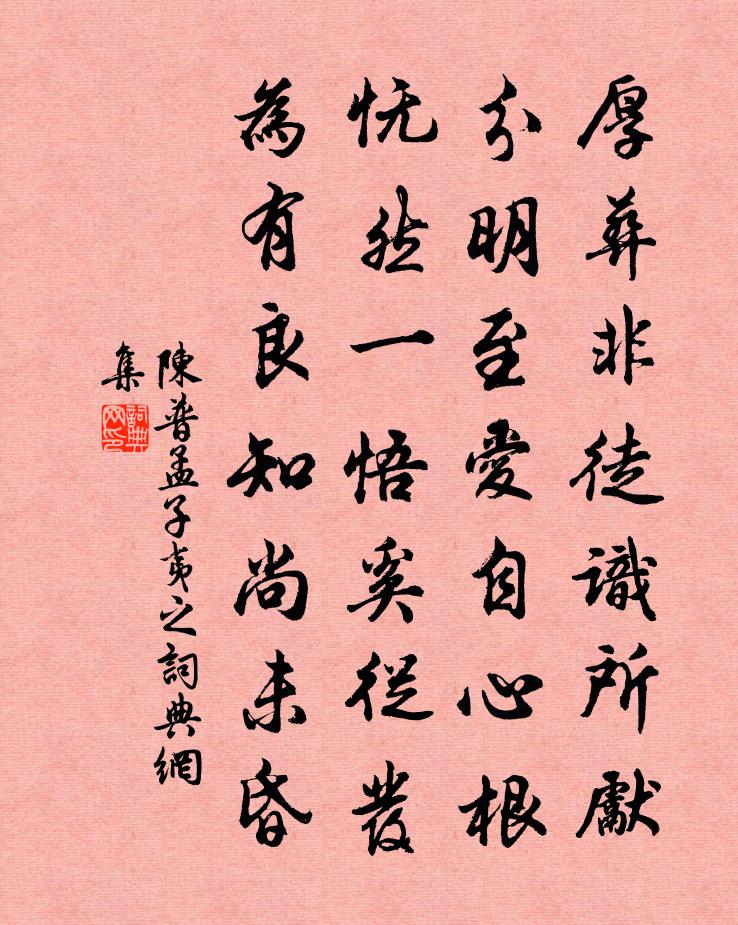 厚葬非徒識所獻
分明至愛自心根
怃然一悟奚從發
為有良知尚未昏
陳普孟子夷之詞典網
集
詞典
网印